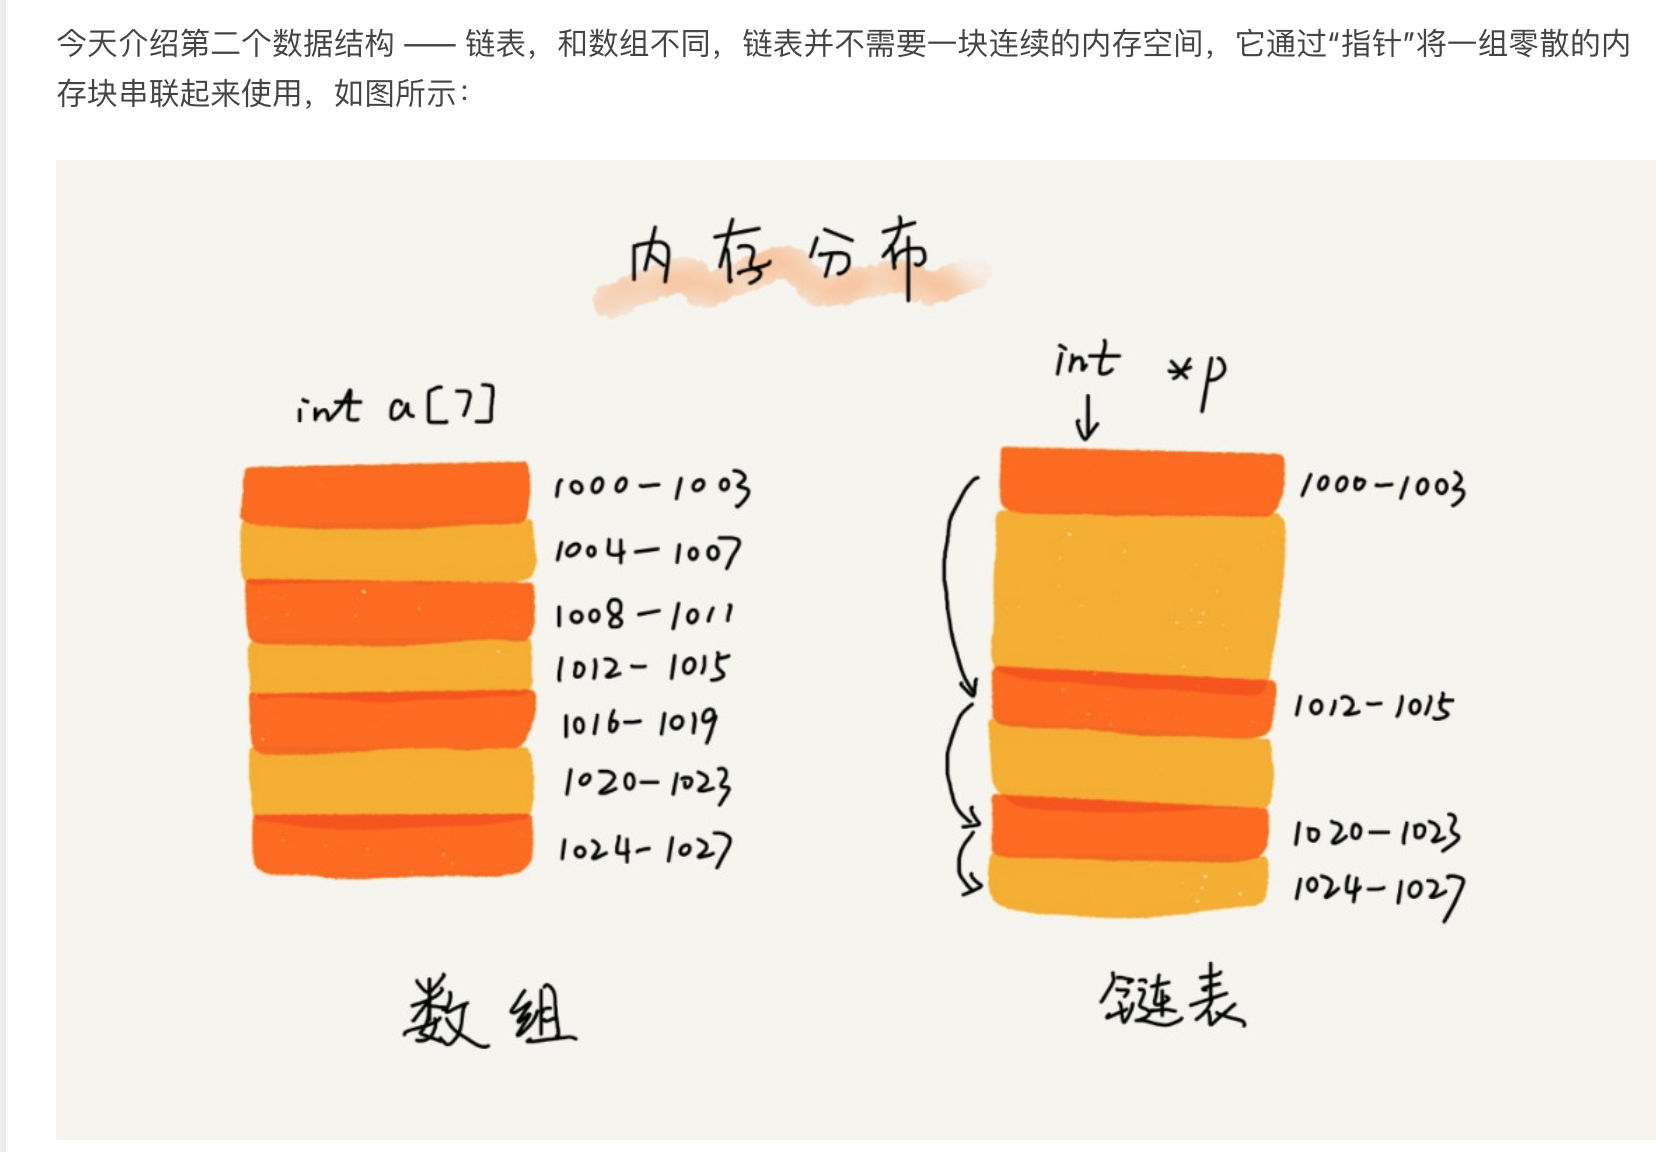 今天介绍第二个数据结构 —— 链表，和数组不同，链表并不需要一块连续的内存空间，它通过“指针”将一组零散的内
存块串联起来使用，如图所示：
内存分布
int a[7]
1000-1003
1004-1007
1008-1011
1012-1015
1016-1019
1020-1023
1024-1027
数组
int *p
1000-1003
1012-1015
1020-1023
1024-1027
链表